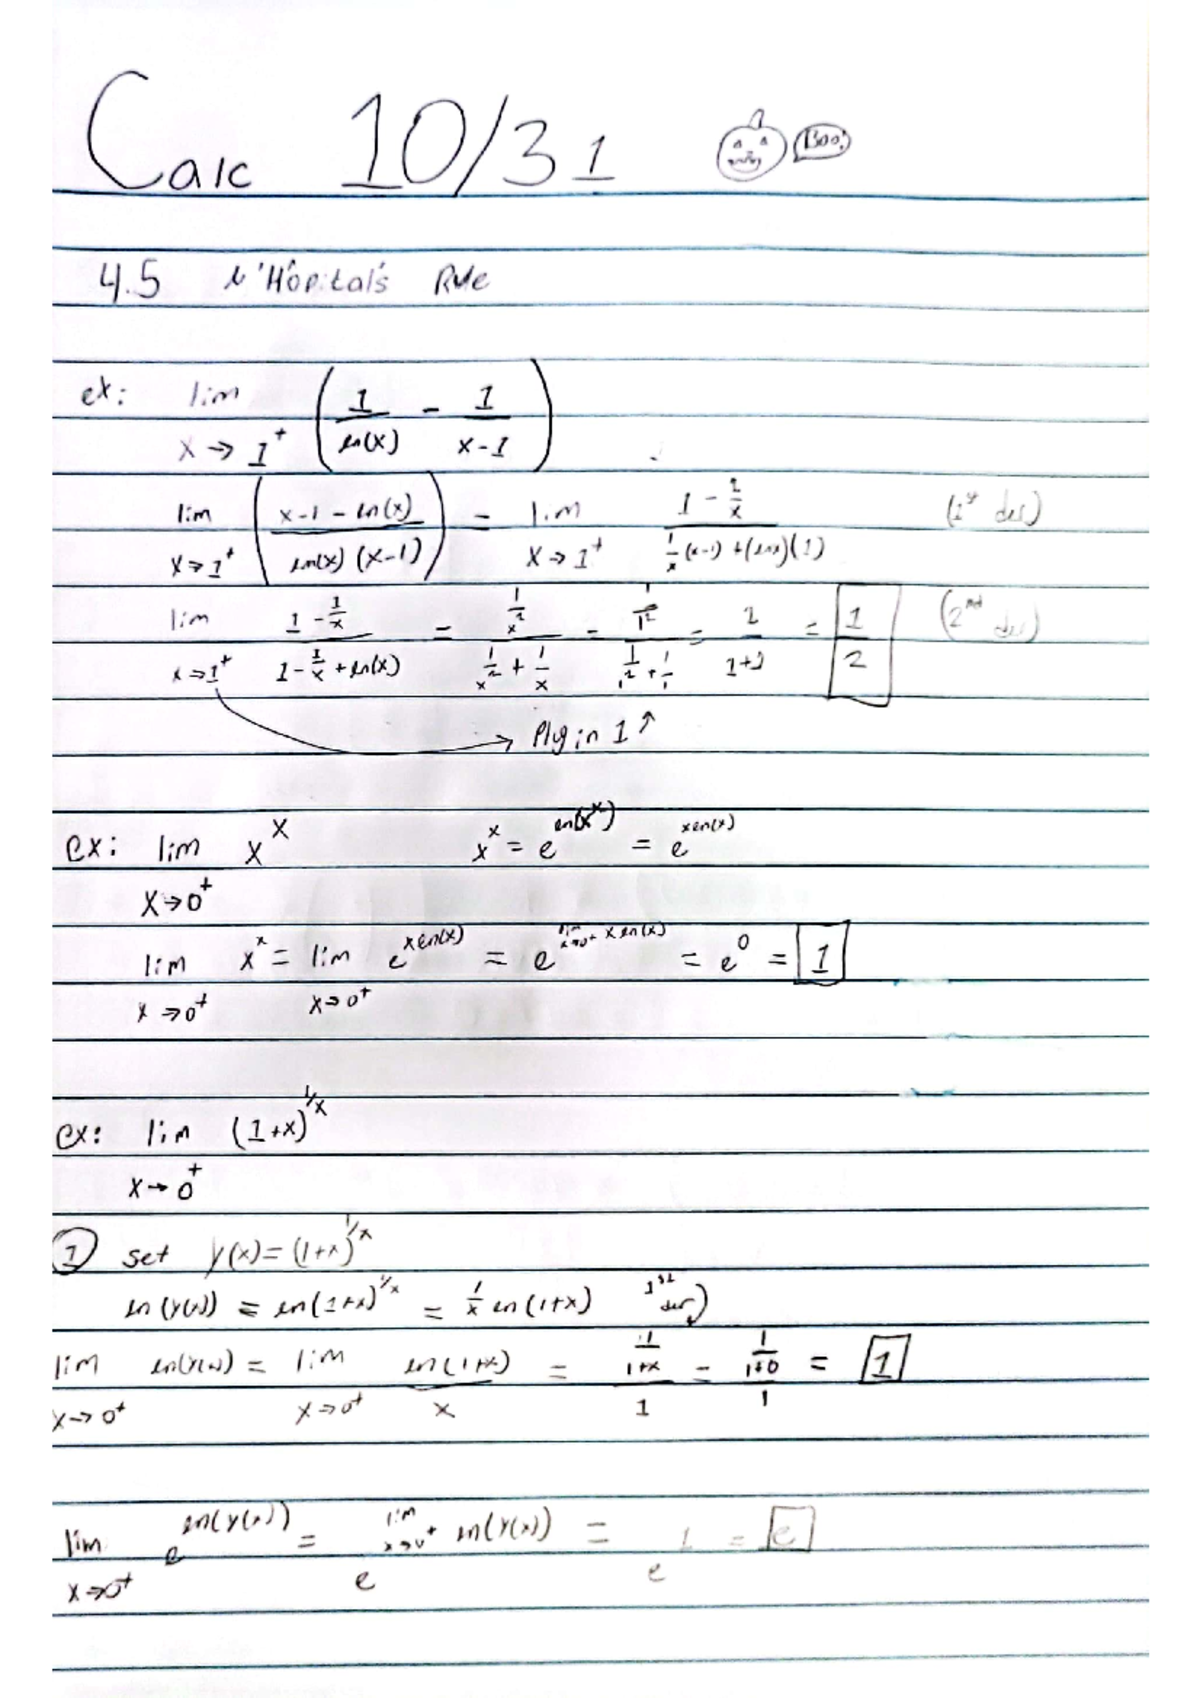 Calc 10/31 Boo!
4.5 L'Hôpital's Rule
ex: lim x→1⁺ (1/ln(x) - 1/(x-1))
lim x→1⁺ ((x-1-ln(x))/(ln(x)(x-1))) = lim x→1⁺ (1-1/x)/(1/x(x-1)+(lnx)(1)) (1st der)
lim x→1⁺ (1-1/x)/(1-1/x+ln(x)) = (1/x²)/(1/x²+1/x) = (1/1²)/(1/1²+1/1) = 1/(1+1) = 1/2 (2nd der)
Plug in 1↑
ex: lim x→0⁺ x^x x^x = e^ln(x^x) = e^xln(x)
lim x→0⁺ x^x = lim x→0⁺ e^xln(x) = e^lim x→0⁺ xln(x) = e^0 = 1
ex: lim x→0⁺ (1+x)^1/x
① set y(x)=(1+x)^1/x
ln(y(x)) = ln(1+x)^1/x = 1/x ln(1+x) 1st der)
lim x→0⁺ ln(y(x)) = lim x→0⁺ ln(1+x)/x = (1/(1+x))/1 = (1/(1+0))/1 = 1
lim x→0⁺ e^ln(y(x)) = e^lim x→0⁺ ln(y(x)) = e^1 = e